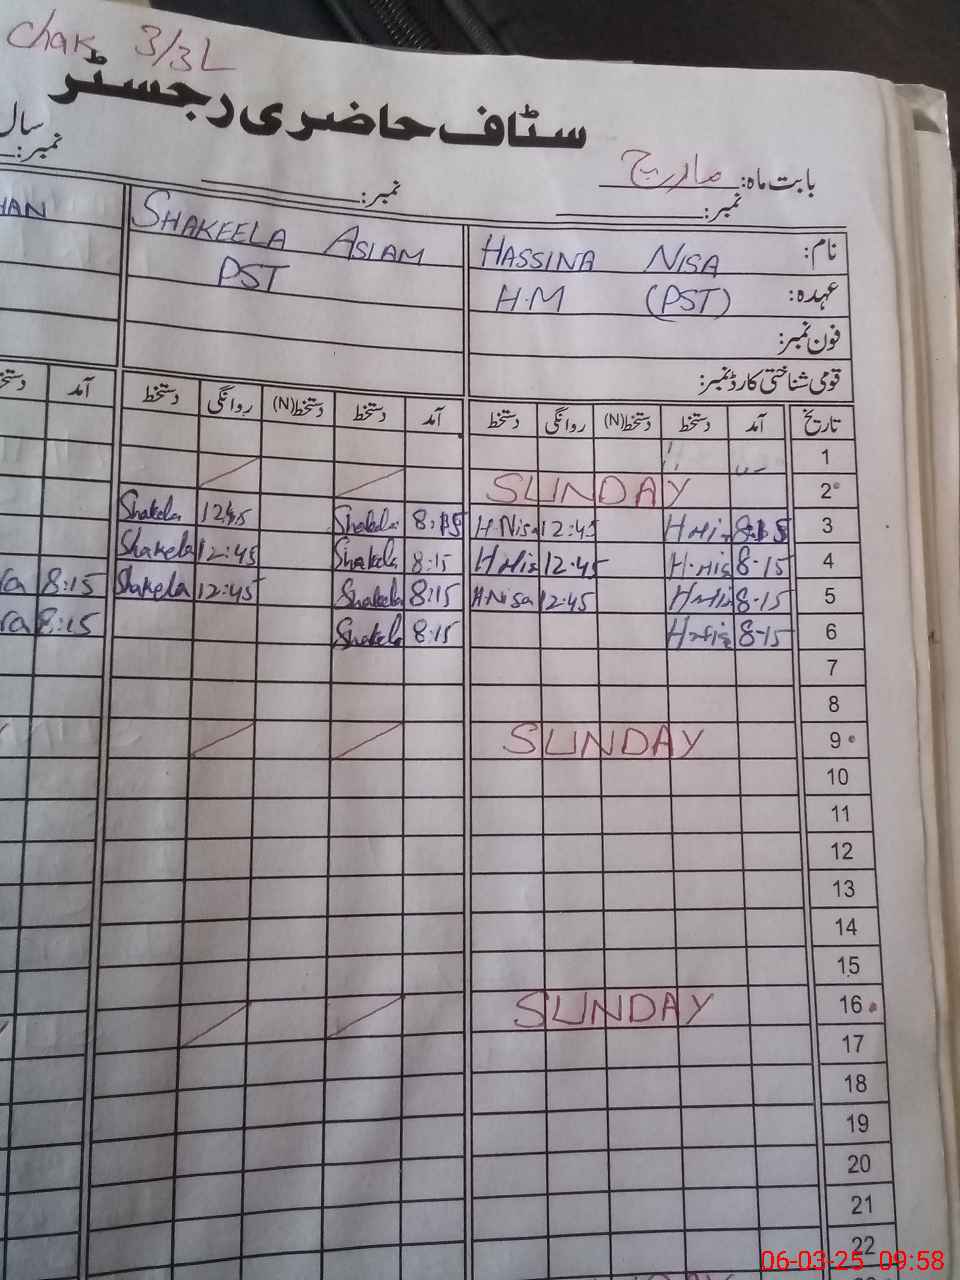 chak 3/3L
سٹاف حاضری رجسٹر
بابت ماہ: مارچ
سال
نمبر:
نمبر:
نمبر:
نام: HASSINA NISA
SHAKEELA ASLAM
HAN
عہدہ: H.M (PST)
PST
فون نمبر:
قومی شناختی کارڈ نمبر:
تاریخ آمد دستخط دستخط(N) روانگی دستخط آمد دستخط دستخط(N) روانگی دستخط آمد
1
2 SUNDAY
3 8:15 12:45 H.Nisa 8:15 Shakela 12:45 Shakela
4 8:15 12:45 8:15 Shakela 12:45 Shakela
5 8:15 12:45 H.Nisa 8:15 Shakela 12:45 Shakela 8:15
6 8:15 8:15 Shakela 8:15
7
8
9 SUNDAY
10
11
12
13
14
15
16 SUNDAY
17
18
19
20
21
22
06-03-25 09:58